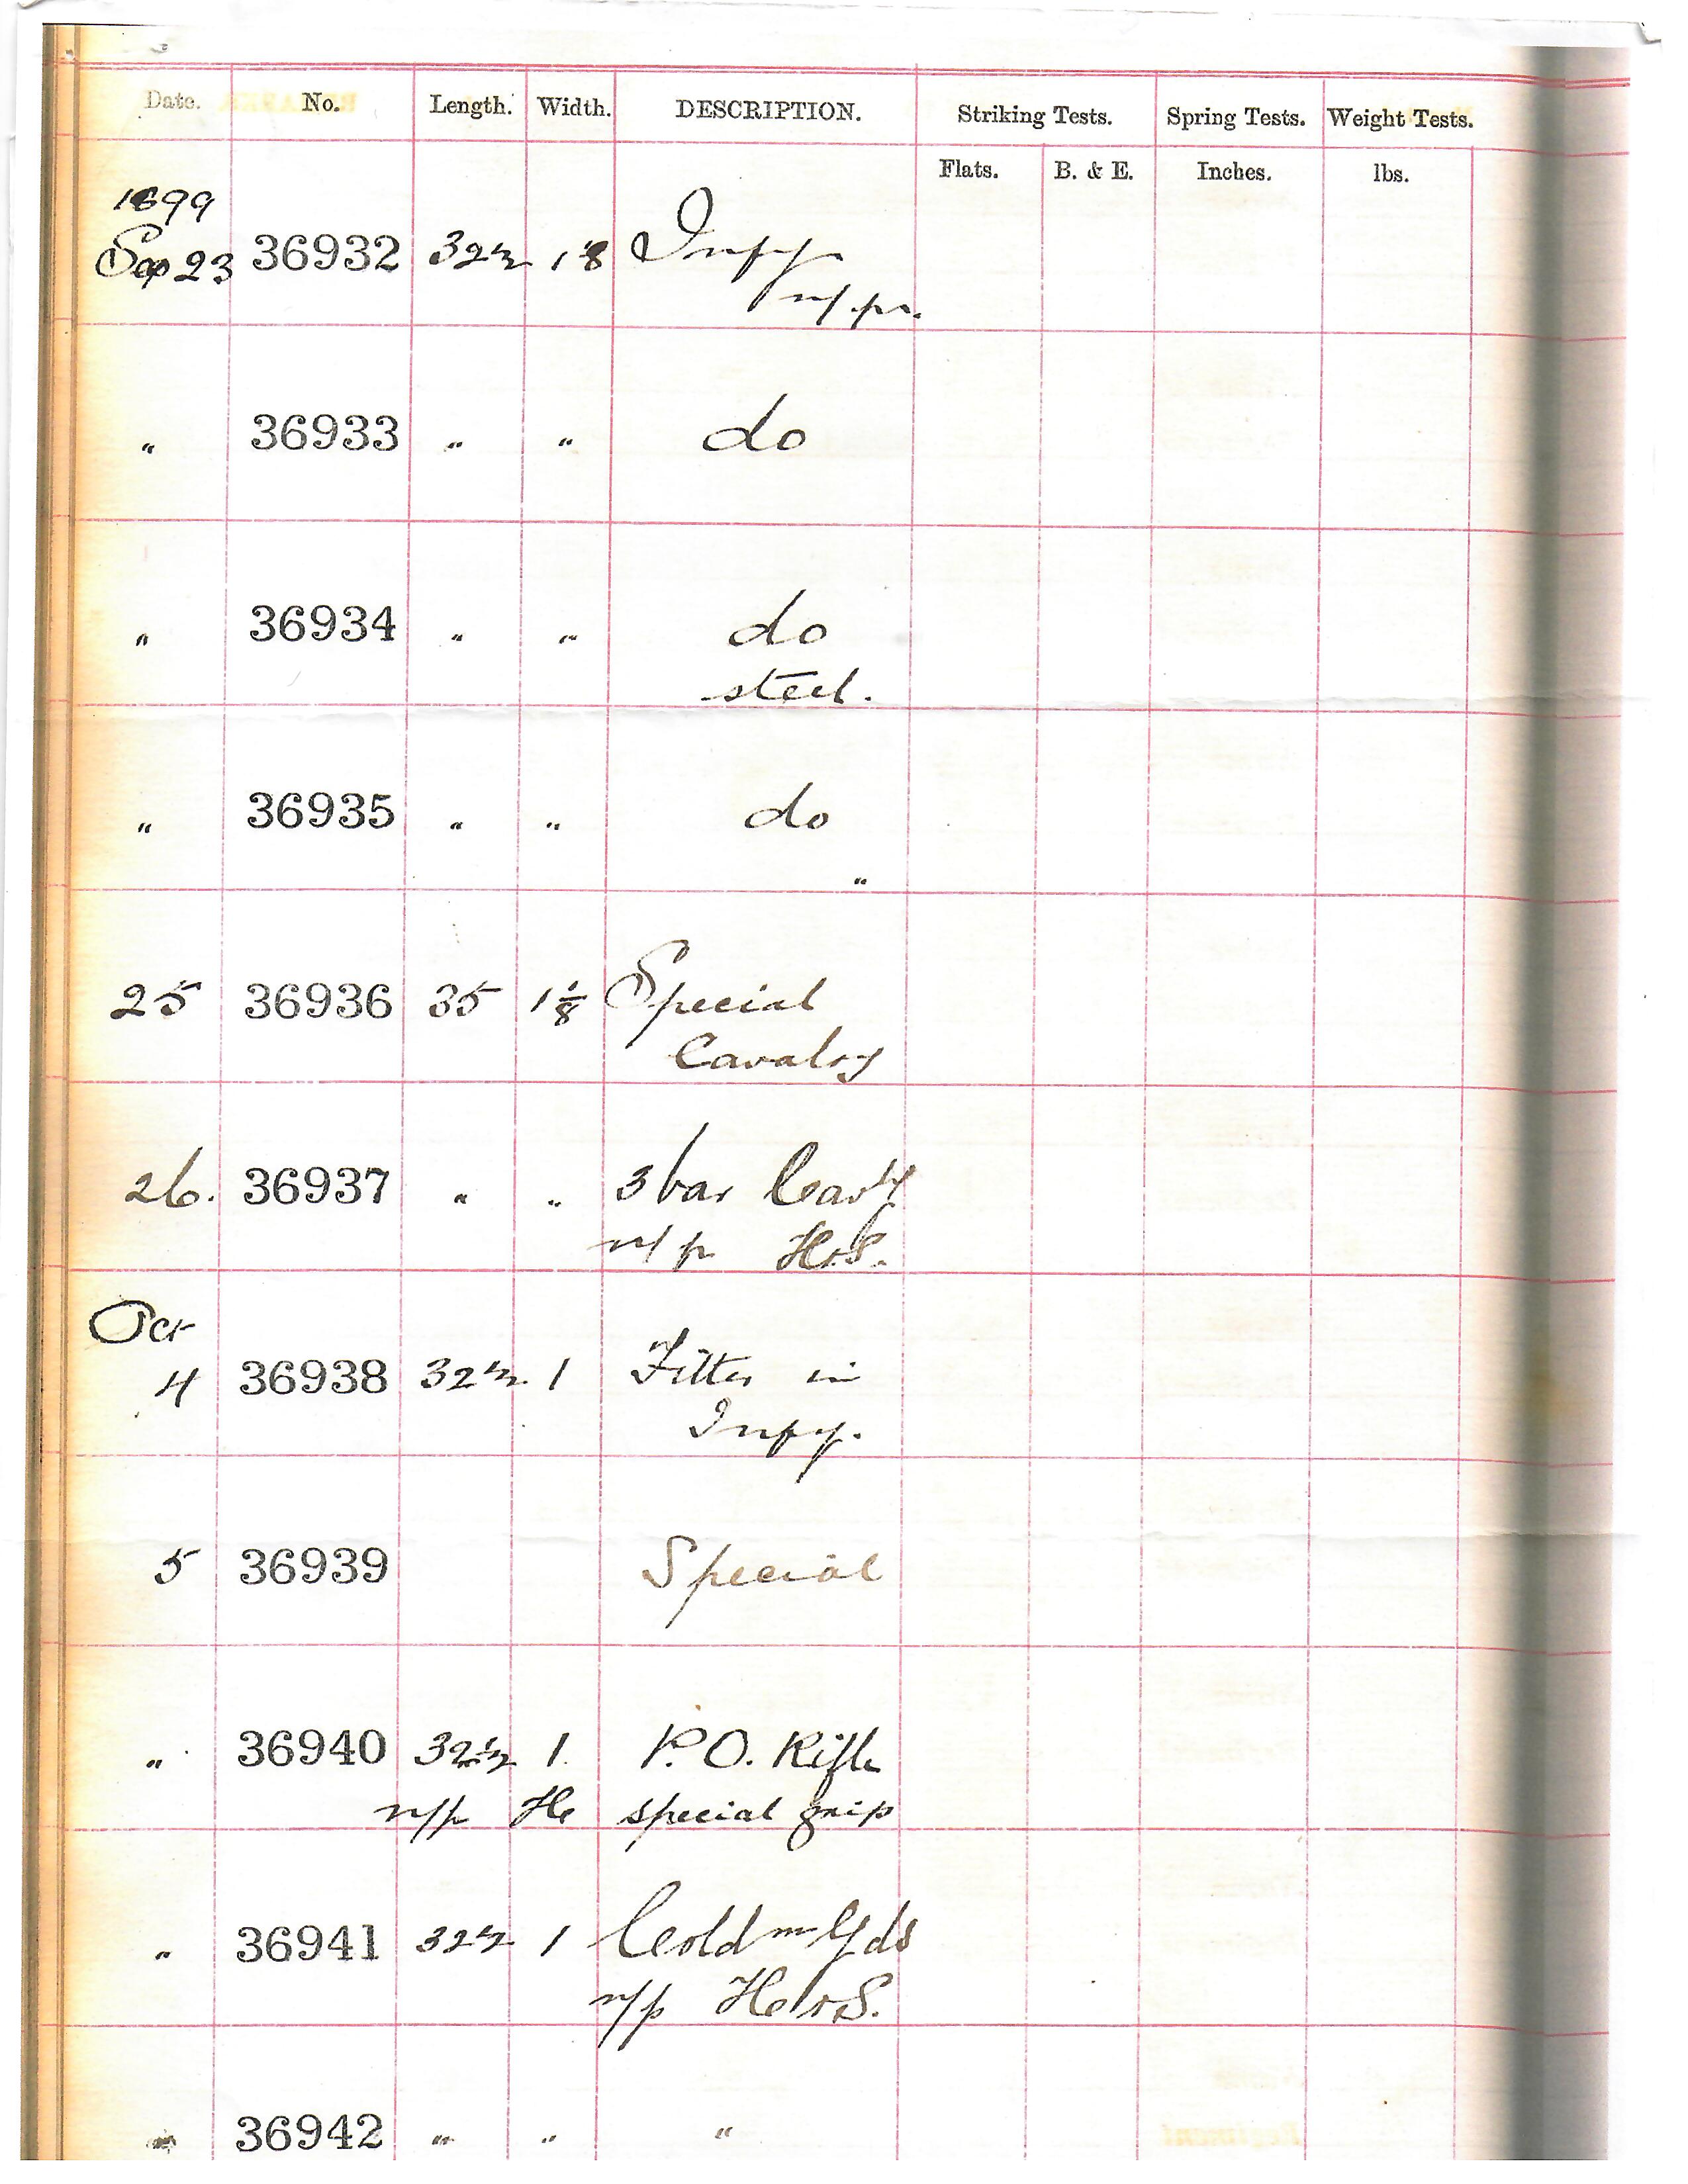 Date. No. Length. Width. DESCRIPTION. Striking Tests. Spring Tests. Weight Tests.
Flats. B. & E. Inches. lbs.
1899
Sep 23 36932 32½ 1⅛ Infy
n/pr.
" 36933 " " do
" 36934 " " do
steel.
" 36935 " " do
"
25 36936 35 1⅛ Special
Cavalry
26. 36937 " " 3 bar Cavly
n/p H&S.
Oct
4 36938 32½ 1 Fitter in
Infy.
5 36939 Special
" 36940 32½ 1. P.O. Rifle
n/p H& special grip
" 36941 32½ 1 Coldm Gds
n/p H&S.
" 36942 " " "